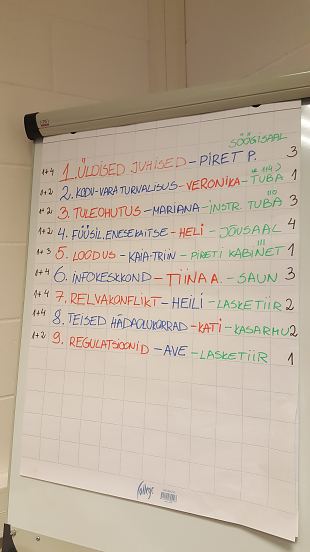 SÖÖGISAAL
1+4 1. ÜLDISED JUHISED - PIRET P. 3
1+2 2. KODU-VARA TURVALISUS - VERONIKA - TUBA 114 1
1+2 3. TULEOHUTUS - MARIANA - INSTR. TUBA 110 3
1+2 4. FÜÜSIL. ENESEKAITSE - HELI - JÕUSAAL 4
1+3 5. LOODUS - KAIA-TRIIN - PIRETI KABINET 111 1
1+4 6. INFOKESKKOND - TIINA A. - SAUN 3
1+4 7. RELVAKONFLIKT - HEILI - LASKETIIR 2
1+4 8. TEISED HÄDAOLUKORRAD - KATI - KASARMU 2
1+2 9. REGULATSIOONID - AVE - LASKETIIR 1
College